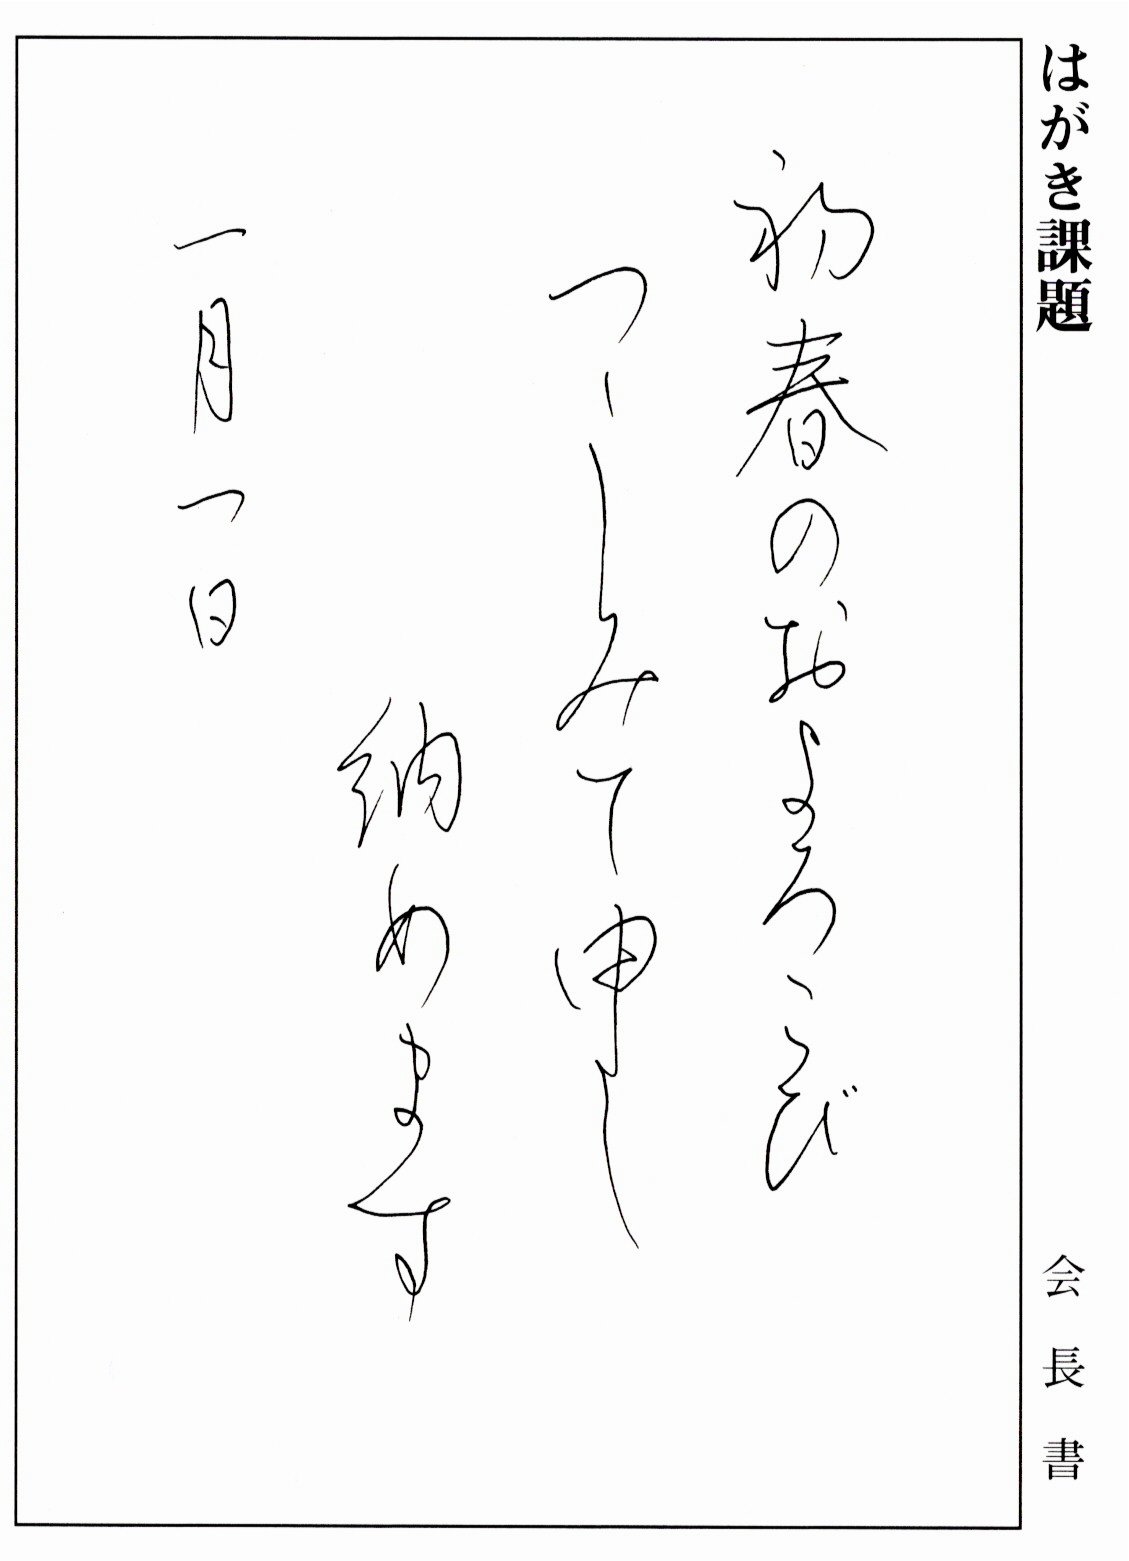 はがき課題
会長書
初春のおよろこび
つゝしみて申し
納めます
一月一日